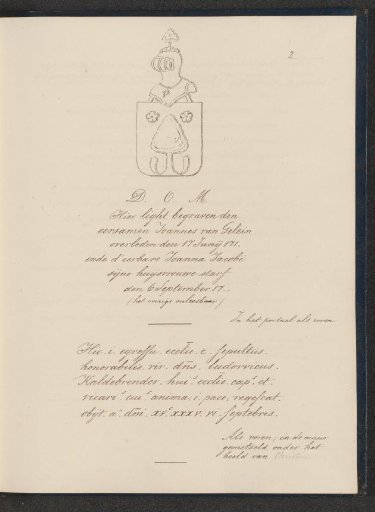 2
D. O. M.
Hier light begraven den
eersamen Joannes van Gelein
overleden den 17 Junij 171.
ende d'eerbare Joanna Jacobi
syne huysvrouwe starf
den 6 September 17.
(het overige onleesbaar)
In het portaal als voren
Hic. i. egressu. ecctis. e. sepultus.
honorabilis. vir. dns. ludovicus.
Kaldebrender. hui. ecctis. cap. et.
vicari. cui. anima. i. pace. reqescat.
obijt. a. dni. xv. xxxv. vi. septebris.
Als voren, in de muur
gemetseld onder het
beeld van Christus